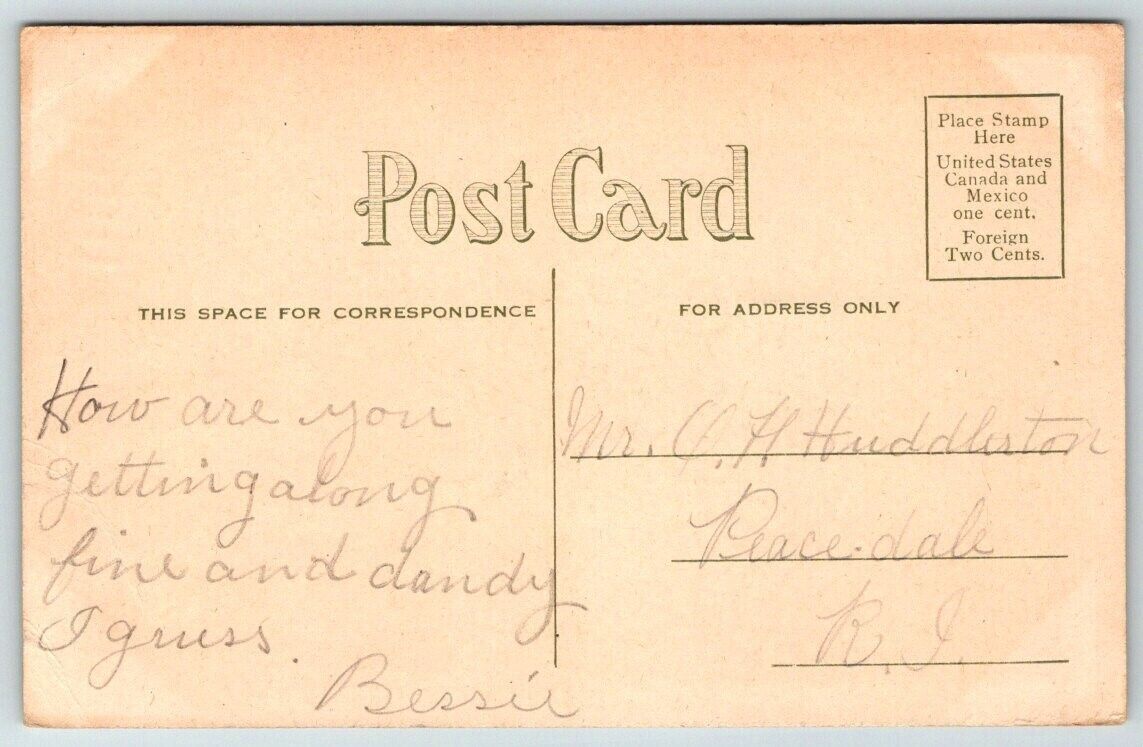 Post Card
Place Stamp
Here
United States
Canada and
Mexico
one cent.
Foreign
Two Cents.
THIS SPACE FOR CORRESPONDENCE
FOR ADDRESS ONLY
How are you
getting along
fine and dandy
I gruss.
Bessie
Mr. H. Huddleston
Peace-dale
R. I.